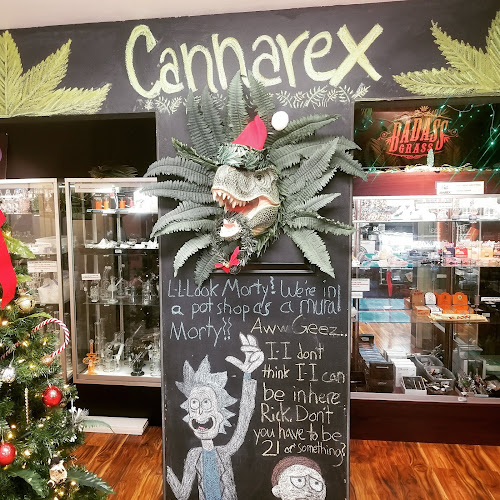 Cannarex
BADASS
GRASS
L-L-Look Morty! We're in
a pot shop as a mural
Morty!!
Aww Geez...
I-I don't
think I I can
be in here
Rick. Don't
you have to be
21 or something?
RAW